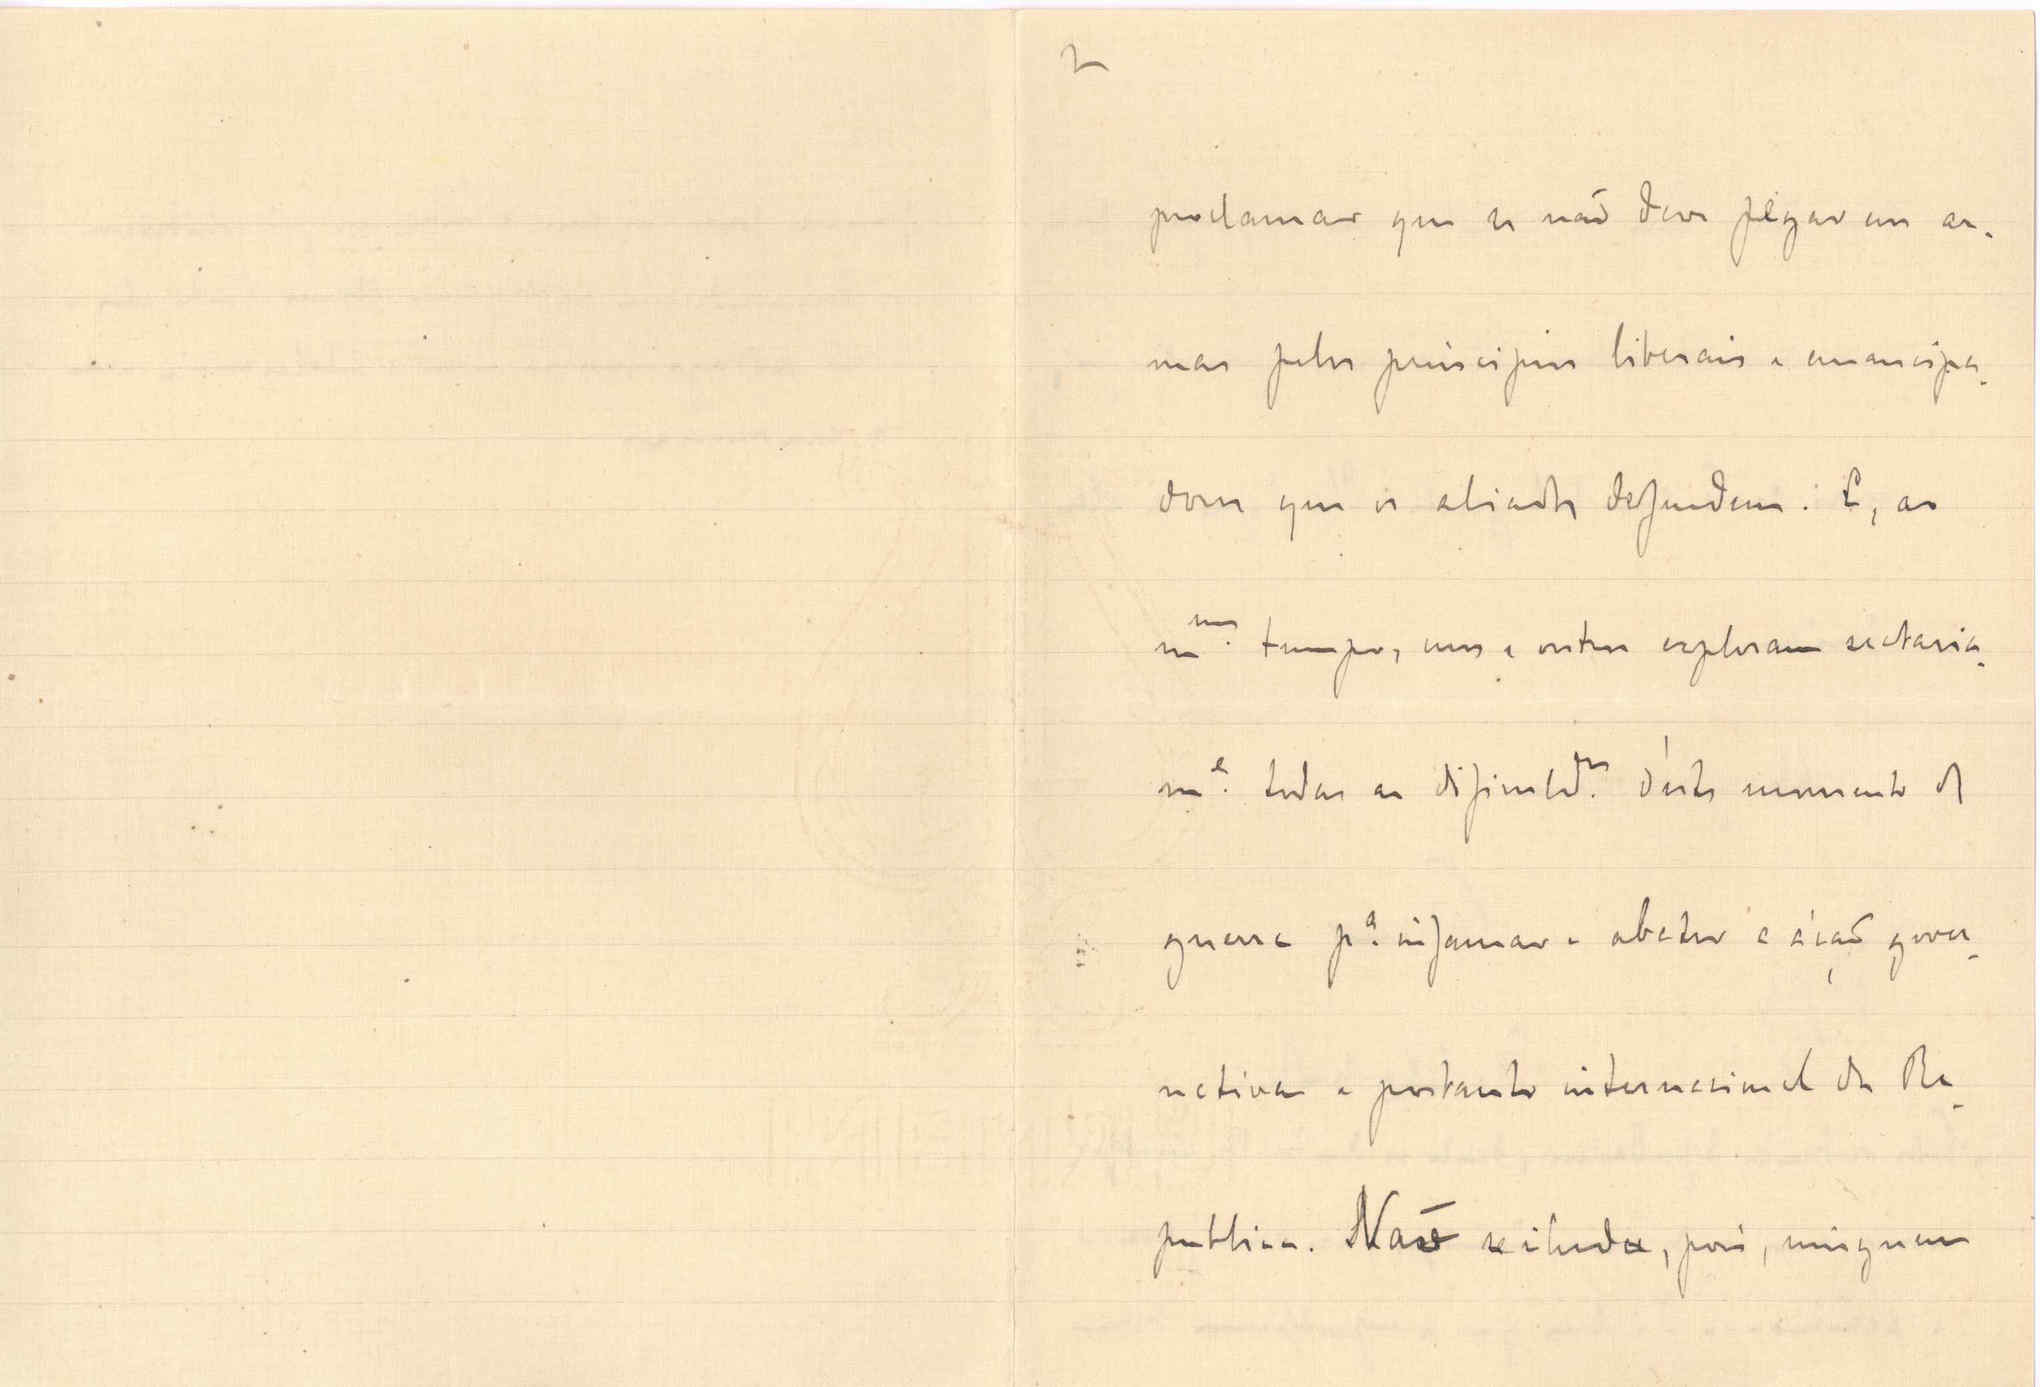 2
proclamar que se não deve pegar em ar-
mas pelos principios liberais e emancipa-
dores que os aliados defendem. E, ao
m.mo tempo, uns e outros exploram sectaria-
m.e todas as dificuld.es d'este momento de
guerra p.a infamar e abater a ácão gover-
nativa e portanto internacional da Re-
publica. Não se iluda, pois, ninguem